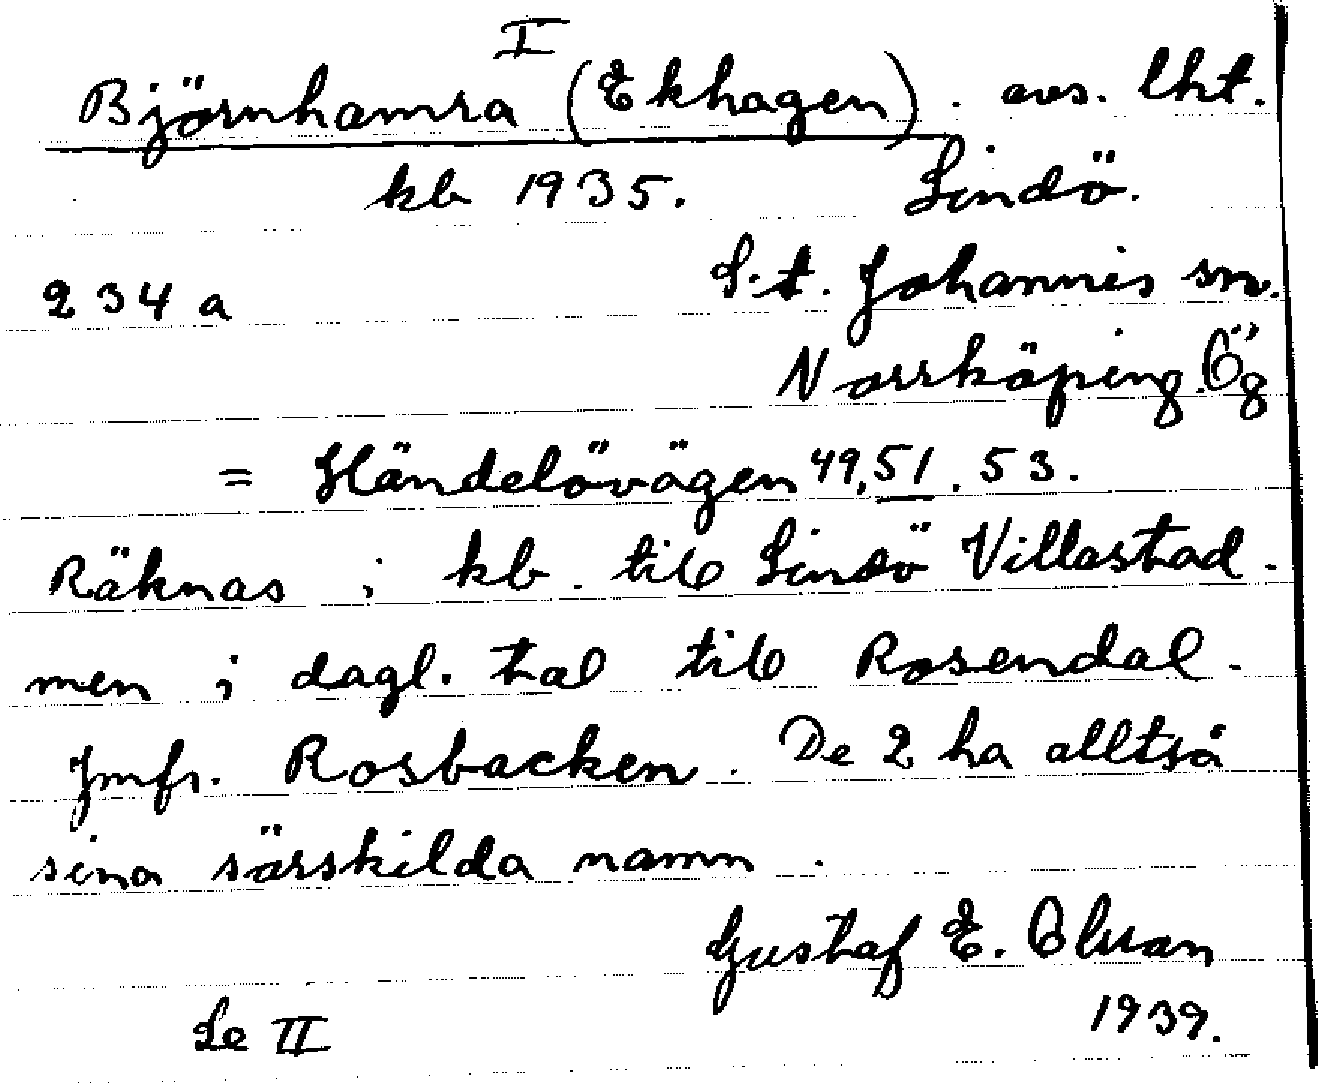 I
Björnhamra (Ekhagen). avs. lht.
kb 1935. Lindö.
234 a S:t. Johannis sn.
Norrköping. Ög
= Händelövägen 49, 51. 53.
Räknas i kb. till Lindö Villastad.
men i dagl. tal till Rosendal.
Jmfr. Rosbacken. De 2 ha alltså
sina särskilda namn.
Gustaf E. Olsson
Se II 1939.